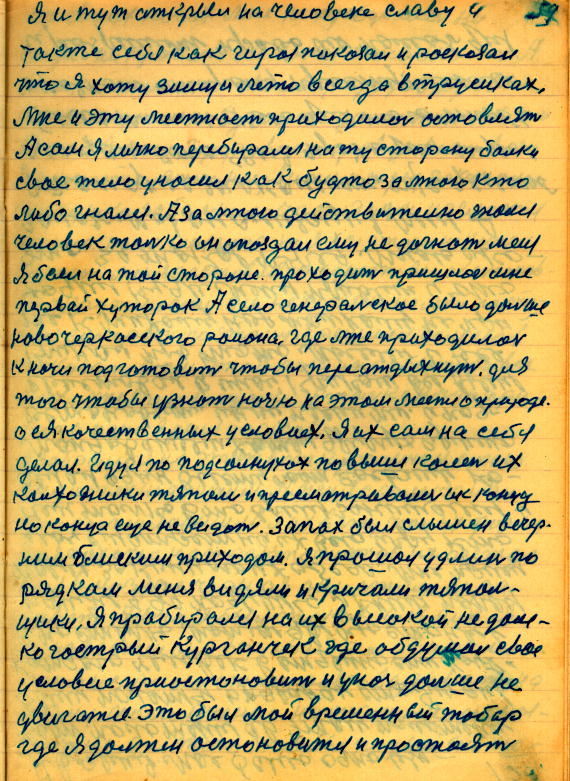 59
Я и тут открыл на человеке славу и
также себя как героя показал и росказал
что я хожу зиму и лето всегда в трусиках,
мне и эту местност приходилос оставлят
А сам я лично перебирался на ту сторону балки
свое тело уносил как будто за мною кто
либо гнался. А за мною действително гнался
человек толко он опоздал ему не догнат меня
я был на той стороне. проходит пришлос мне
первай хуторок А село генералское было далше
новочеркасского района, где мне приходилос
к ночи подготовит чтобы переатдыхнут, для
того чтобы узнат ночю на этом месте о природе.
о ея качественных условиех, Я их сам на себя
делал. Идуя по подсолнухох повыши колен их
колхозники тяпали и пресматривалис их концу
но конца еще не видат. Запах был слышен вечер-
ним блиским приходом. Я прошол удлин по
рядкам меня видяли и кричали тяпал-
щики, Я прабирался на их высокой недале-
ко гострый Курганчек где обдумал свое
условие приостоновит и уноч далше не
двигатся. Это был мой временный табар
где я должен остоновится и простоят